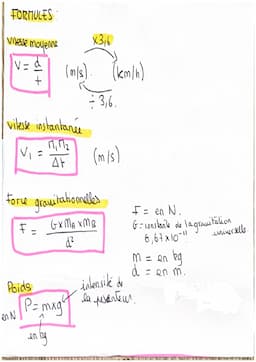 FORMULES:
vitesse moyenne
x3,6
V = d/t (m/s) (km/h)
÷ 3,6.
vitesse instantanée
V₁ = M₁M₂/Δt (m/s)
force gravitationnelles
F = G×mA×mB/d²
F = en N.
G = constante de la gravitation universelle.
6,67 × 10⁻¹¹
m = en kg
d = en m.
Poids
P = m×g
intensité de la pesanteur.
en N
en kg